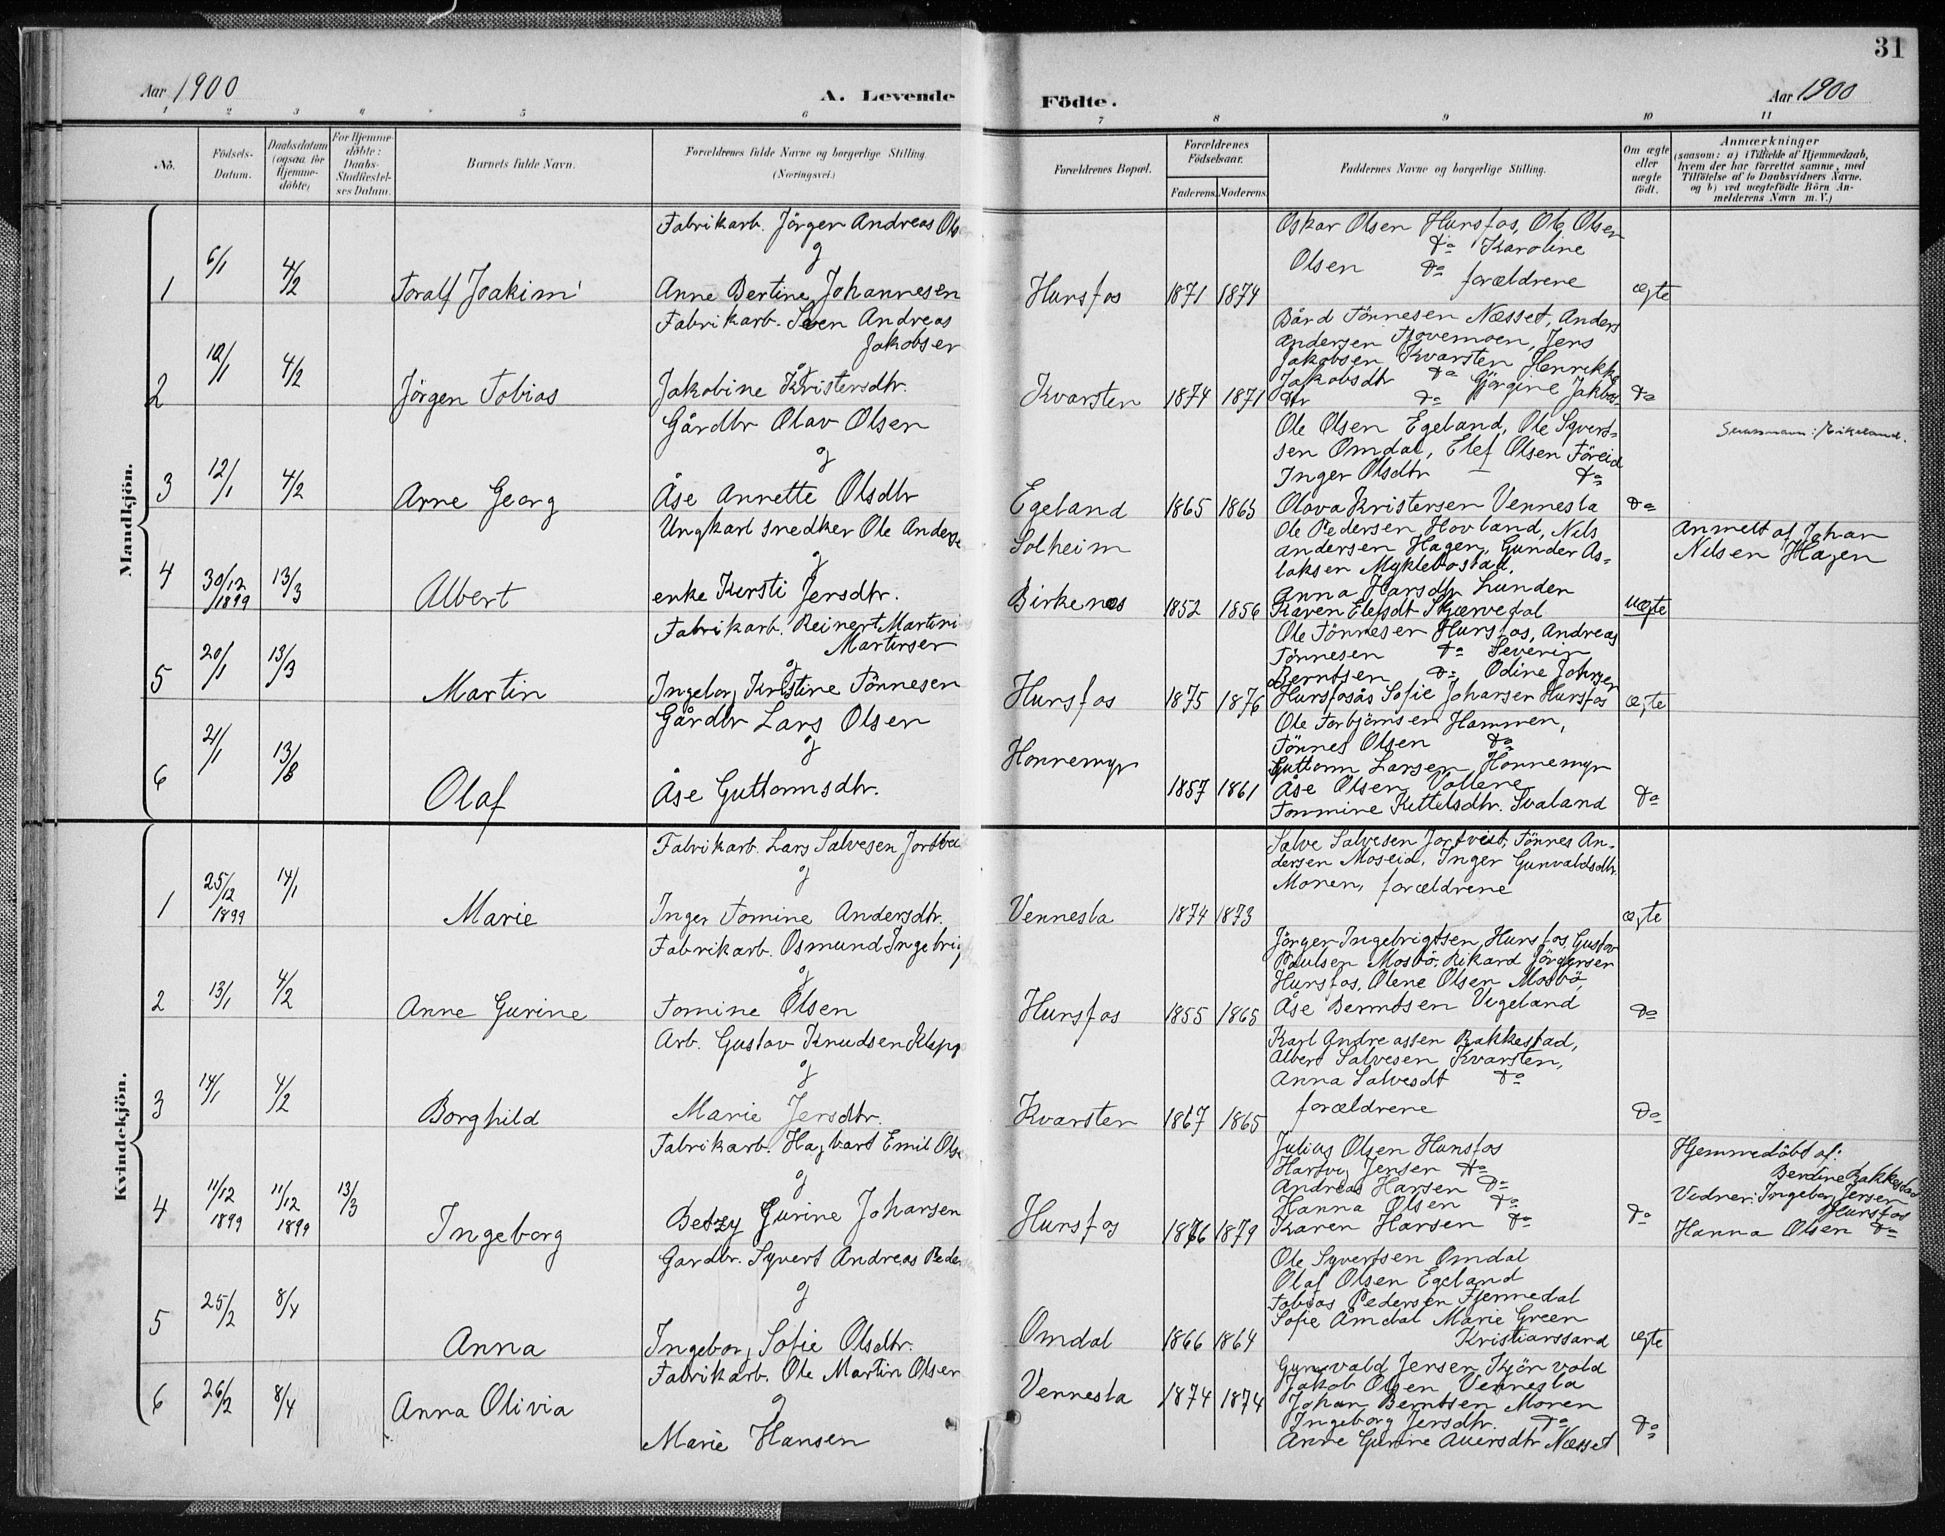 31
Aar 1900 A. Levende Födte. Aar 1900
1 2 3 4 5 6 7 8 9 10 11
No. Födsels-Datum. Daabsdatum (ogsaa for Hjemme-döbte) For Hjemme-döbte: Daabs-Stadfæstel-ses Datum. Barnets fulde Navn. Forældrenes fulde Navne og borgerlige Stilling. (Næringsvei.) Forældrenes Bopæl. Forældrenes Födselsaar. Faderens. Moderens. Faddernes Navne og borgerlige Stilling. Om ægte eller uægte födt. Anmærkninger (saasom: a) i Tilfælde af Hjemmedaab, hvem der har forrettet samme, med Tilföielse af to Daabsvidners Navne, og b) ved uægtefödte Börn An-melderens Navn m. V.)
Mandkjön.
Fabrikarb. Jörgen Andreas Ols
og
1 6/1 4/2 Toralf Joakim Anne Bertine Johannesen
Hunsfos 1871 1874
Oskar Olsen Hunsfos, Ole Olsen
do Karoline
Olsen do
forældrene ægte
Fabrikarb. Sven Andreas
Jakobsen
og
2 10/1 4/2 Jörgen Tobias Jakobine Kristensdtr.
Kvarsten 1874 1871
Bård Tönnesen Næsset, Anders
Andersen Tjovemoen, Jens
Jakobsen Kvarsten Henrikke
Jakobsdtr do Görgine Jakobs
dtr do do
Gårdbr Olav Olsen
og
3 12/1 4/2 Arne Georg Åse Annette Olsdtr
Egeland 1865 1865
Ole Olsen Egeland, Ole Syvert-
sen Omdal, Elef Olsen Föreid
Inger Olsdtr do
Olava Kristensen Vennesla do
Ungkarl snedker Ole Anderse
og
4 30/12 1899 13/3 Albert enke Kirsti Jensdtr.
Solheim
Birkenes 1852 1856
Ole Pedersen Hovland, Nils
Andersen Hagen, Gunder As-
laksen Myklebostad.
Anna Hansdtr Lunden
Karen Elefsdt Skjærvedal uægte
Anmeldt af Johan
Nilsen Hagen
Fabrikarb. Reinert Martini
Martinsen
og
5 20/1 13/3 Martin Ingeborg Kristine Tönnesen
Hunsfos 1875 1876
Ole Tönnesen Hunsfos, Andreas
Tönnesen do Severin
Berntsen do, Odine Johnsen
Hunsfosås Sofie Johansen Hunsfos ægte
Gårdbr Lars Olsen
og
6 21/1 13/8 Olaf Åse Guttormsdtr.
Honnemyr
1857 1861
Ole Torbjörnsen Hammen,
Tönnes Olsen do
Guttorm Larsen, Honnemyr
Åse Olsen Vollene
Tommine Kittelsdtr. Svaland do
Kvindekjön.
Fabrikarb. Lars Salvesen Jortvei
og
1 25/12 1899 14/1 Marie Inger Tomine Andersdtr.
Vennesla 1874 1873
Salve Salvesen Jortveit, Tönnes An-
dersen Moseid, Inger Gunvaldsdtr.
Monen, forældrene
ægte
Fabrikarb. Osmund Ingebrig
og
2 13/1 4/2 Anne Gurine Tomine Olsen
Hunsfos 1855 1865
Jörgen Ingebrigtsen, Hunsfos, Gustav
Paulsen Mosbö, Rikard Jörgensen
Hunsfos, Olene Olsen Mosbö,
Åse Berntsen Vigeland do
Arb. Gustav Knudsen Klepp
og
3 14/1 4/2 Borghild Marie Jensdtr.
Kvarsten 1867 1865
Karl Andreassen Bakkestad,
Albert Salvesen Kvarsten,
Anna Salvesdt do
forældrene do
Fabrikarb. Hagbart Emil Olse
og
4 11/12 1899 11/12 1899 13/3 Ingeborg Betzy Gurine Johansen
Hunsfos 1876 1879
Julius Olsen Hunsfos
Hartvig Jensen do
Andreas Hansen do
Hanna Olsen do
Karen Hansen do do
Hjemmedöbt af:
Berdine Bakkestad
Vidner: Ingeborg Jensen
Hunsfos
Hanna Olsen do
Gardbr. Syvert Andreas Peder
og
5 25/2 8/4 Anna Ingeborg Sofie Olsdtr.
Omdal 1866 1864
Ole Syvertsen Omdal
Olaf Olsen Egeland
Tobias Pedersen Fjermedal
Sofie Åmdal Marie Green
Kristianssand ægte
Fabrikarb. Ole Martin Olsen
og
6 26/2 8/4 Anna Olivia Marie Hansen
Vennesla 1874 1874
Gunvald Jensen Kjörvold
Jakob Olsen Vennesla
Johan Berntsen Monen
Ingeborg Jensdtr. do
Anne Gurine Auensdtr Næsset do